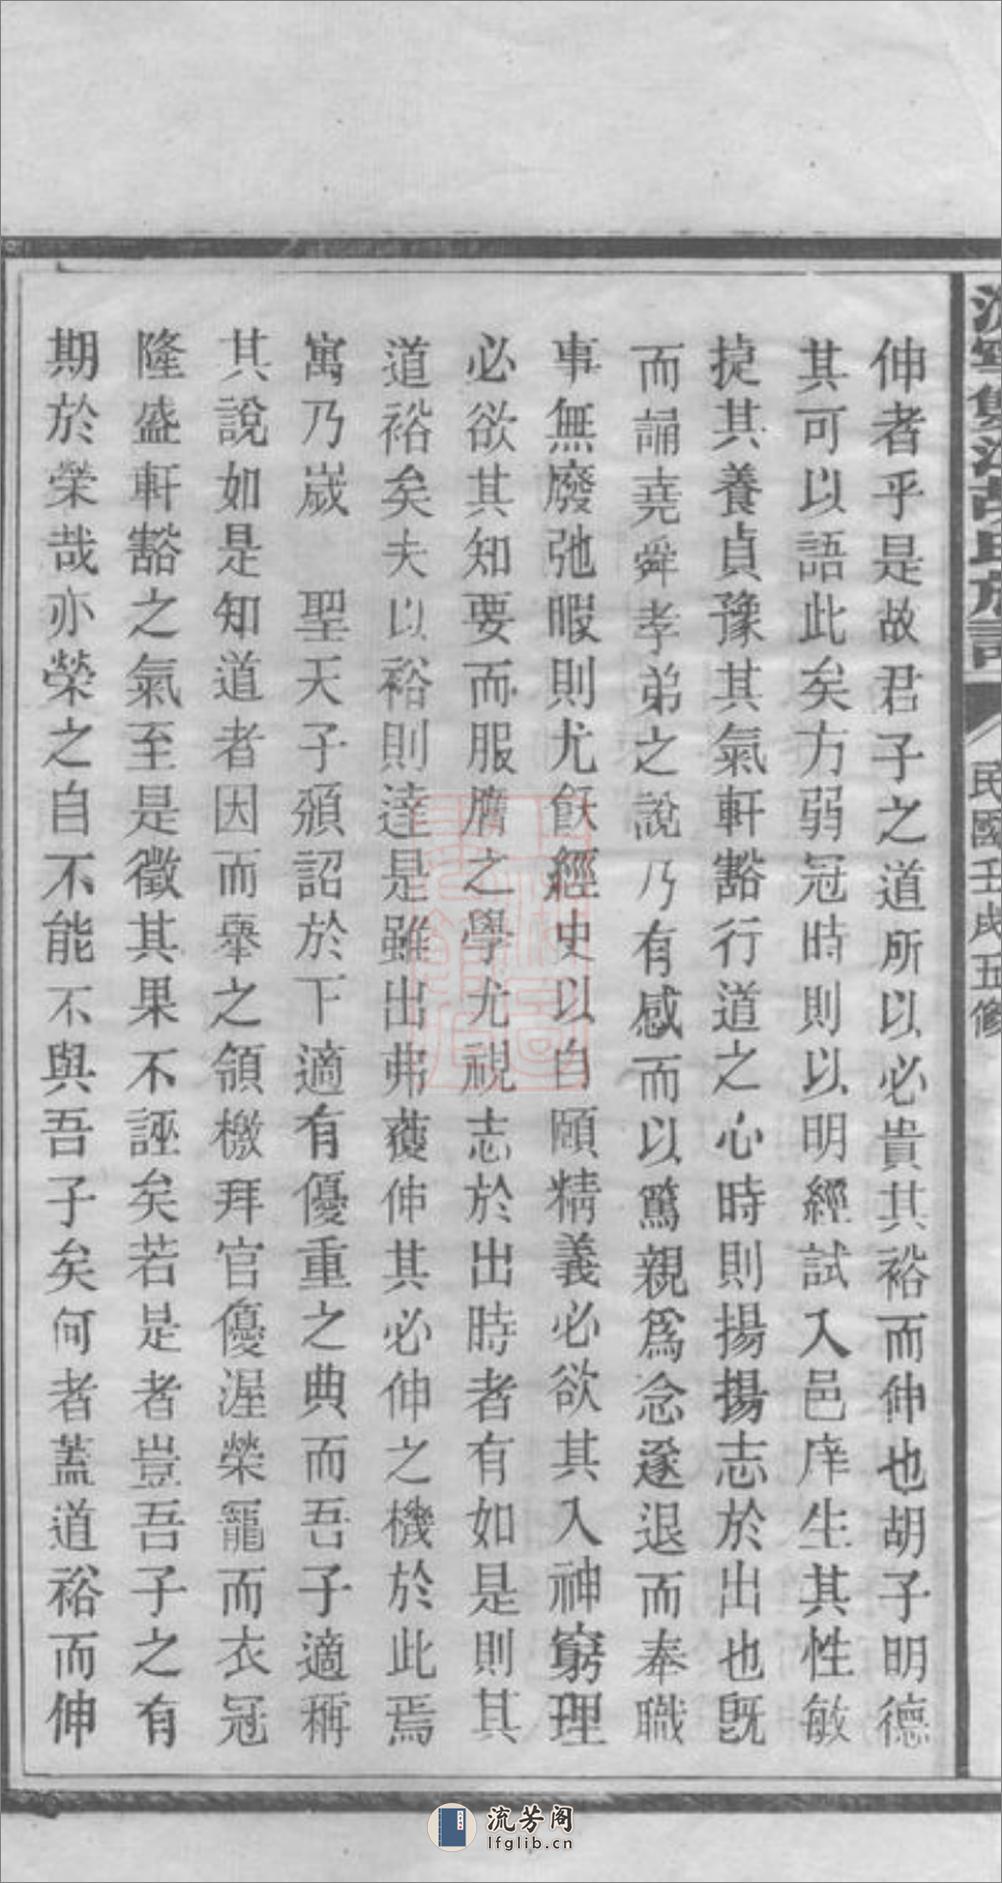 伸者乎是故君子之道所以必貴其裕而伸也胡子明德
其可以語此矣方弱冠時則以明經試入邑庠生其性敏
捷其養貞豫其氣軒豁行道之心時則揚揚志於出也旣
而誦堯舜孝弟之說乃有感而以篤親爲念遂退而奉職
事無廢弛暇則尤飫經史以自頤精義必欲其入神窮理
必欲其知要而服膺之學尤視志於出時者有如是則其
道裕矣夫以裕則達是雖出弗蘧伸其必伸之機於此焉
寓乃嵗　聖天子頒詔於下適有優重之典而吾子適稱
其說如是知道者因而舉之領檄拜官優渥榮寵而衣冠
隆盛軒豁之氣至是徵其果不誣矣若是者豈吾子之有
期於榮哉亦榮之自不能不與吾子矣何者蓋道裕而伸
胡氏族譜
民國壬戌五修
流芳阁
lfglib.cn